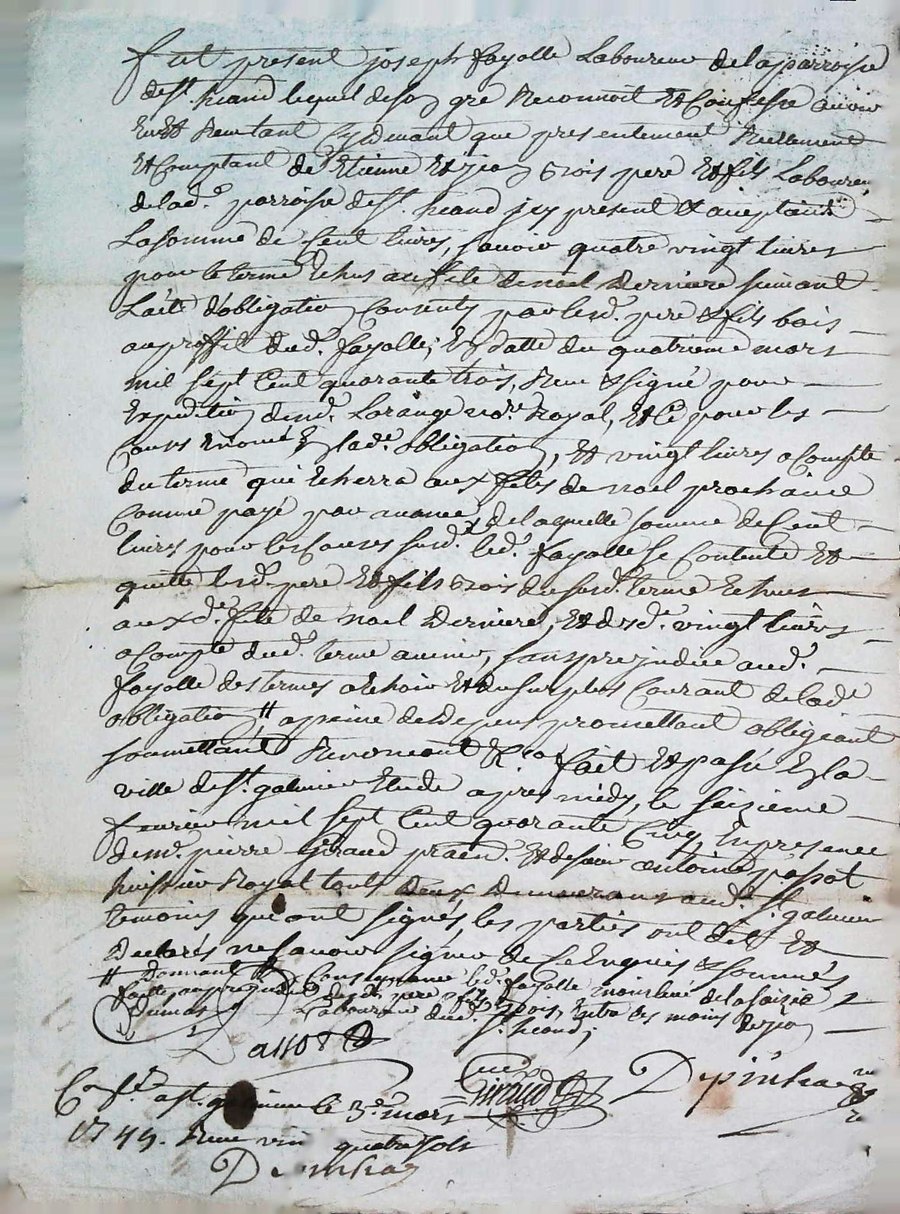 fut present joseph fayolle Laboureur de la parroisse
de st. heand lequel de son gré Reconnoit et Confesse avoir
Eu et Receu tant Cydevant que presentement Reellement
et Comptant de Etienne et jean bois pere et fils Laboureurs
de lad.e parroisse de st. heand icy present et acceptants
La somme de Cent livres, savoir quatre vingt livres
pour le terme Echus au fête de noel Derniere suivant
L'acte d'obligation Consenty par lesd. pere et fils bois
au proffit dud. fayolle, En datte du quatrieme mars
mil sept Cent quarante trois, Receu et signé pour
Expedition de me. Lorange no.re Royal, et Ce pour les
Causes Enoncé En lad.e obligation, et vingt livres a Compte
du terme qui Echerra aux fêtes de noel prochaine
Comme payé par avance, de laquelle somme de Cent
livres pour les Causes susd. led. fayolle se Contente et
quitte lesd. pere et fils bois du susd. terme Echus
auxd.e fête de noel Derniere, et desd.e vingt livres
a Compte dud. terme avenir, sans prejudice aud.
fayolle des termes a Echoir et du surplus Courant de lad.e
obligation # a peine de Depens promettant obligeant
soumettant Renonceant &ca fait et passé En la
ville de st. galmier Etude apres midy, le saizieme
fevrier mil sept Cent quarante Cinq En presence
de me. pierre Giraud praticn. et de sieur antoine passot
huissier Royal touts deux Demeurans aud. st. galmier
temoins qui ont signés, les parties ont dit et
Declarés ne savoir signer de Ce Enquis et sommés
# Donnant led. fayolle de la saizie
faitte au prejudice desd. pere et fils bois Entre les mains de jean
Dumas Laboureur dud. st. heand;
Passot
Giraud Depinhac
C.lé a st. galmier le 3e. mars
1745. Receu vin quatre sols
Depinhac